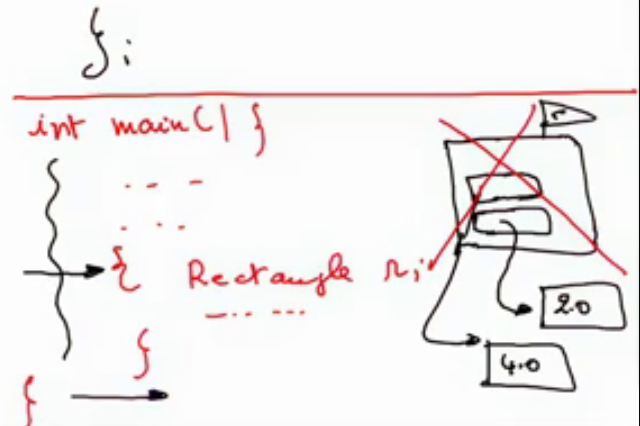 };
int main() {
r
{ Rectangle r;
2.0
}
4.0
}